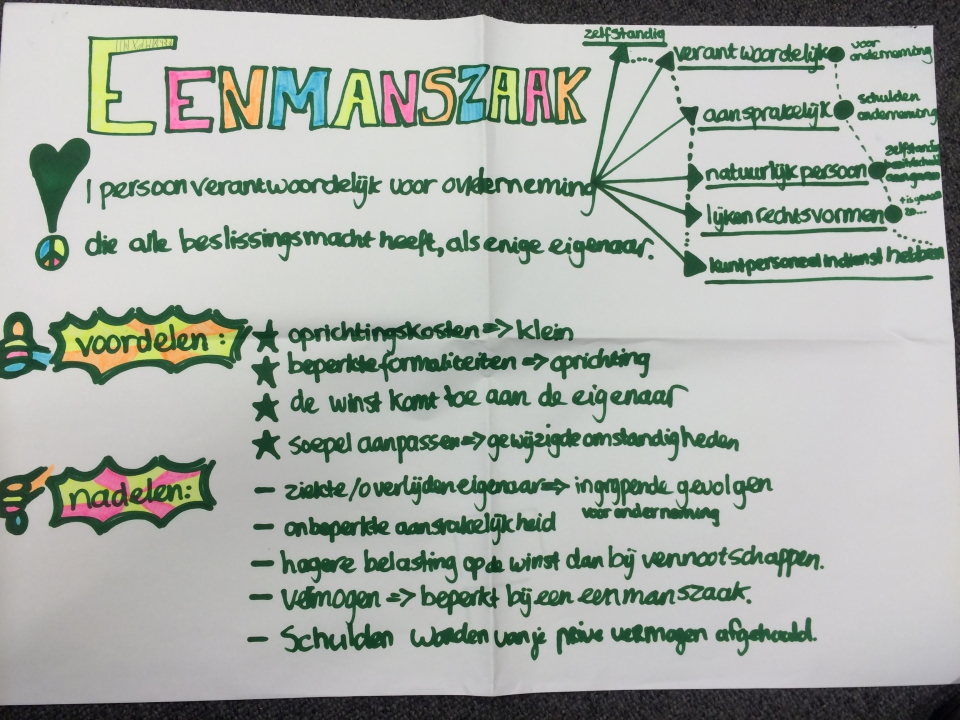 EENMANSZAAK
zelfstandig
verantwoordelijk
voor
onderneming
aansprakelijk
schulden
onderneming
natuurlijk persoon
zelfstandig
lijken rechtsvormen
kunt personeel in dienst hebben
1 persoon verantwoordelijk voor onderneming
die alle beslissingsmacht heeft, als enige eigenaar.
voordelen:
★ oprichtingskosten => klein
★ beperkte formaliteiten => oprichting
★ de winst komt toe aan de eigenaar
★ soepel aanpassen => gewijzigde omstandigheden
nadelen:
- ziekte/overlijden eigenaar => ingrijpende gevolgen
voor onderneming
- onbeperkte aansrakelijkheid
- hogere belasting op de winst dan bij vennootschappen.
- vermogen => beperkt bij een eenmanszaak.
- Schulden worden van je prive vermogen afgehaald.